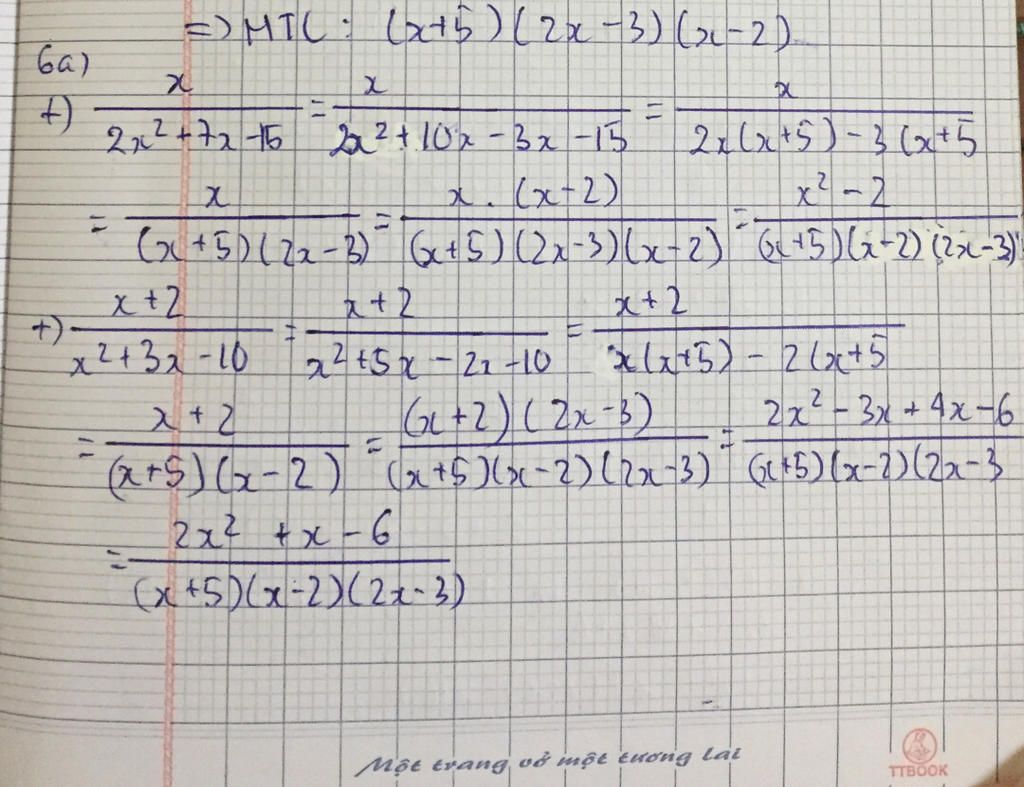 => MTC : (x+5)(2x-3)(x-2)
6a)
+) x/(2x²+7x-15) = x/(2x²+10x-3x-15) = x/(2x(x+5)-3(x+5
= x/((x+5)(2x-3)) = x.(x-2)/((x+5)(2x-3)(x-2)) = x²-2/((x+5)(x-2)(2x-3))
+) x+2/(x²+3x-10) = x+2/(x²+5x-2x-10) = x+2/(x(x+5)-2(x+5
= x+2/((x+5)(x-2)) = (x+2)(2x-3)/((x+5)(x-2)(2x-3)) = 2x²-3x+4x-6/((x+5)(x-2)(2x-3
= 2x²+x-6/((x+5)(x-2)(2x-3))
Một trang vở một tương lai
TTBOOK